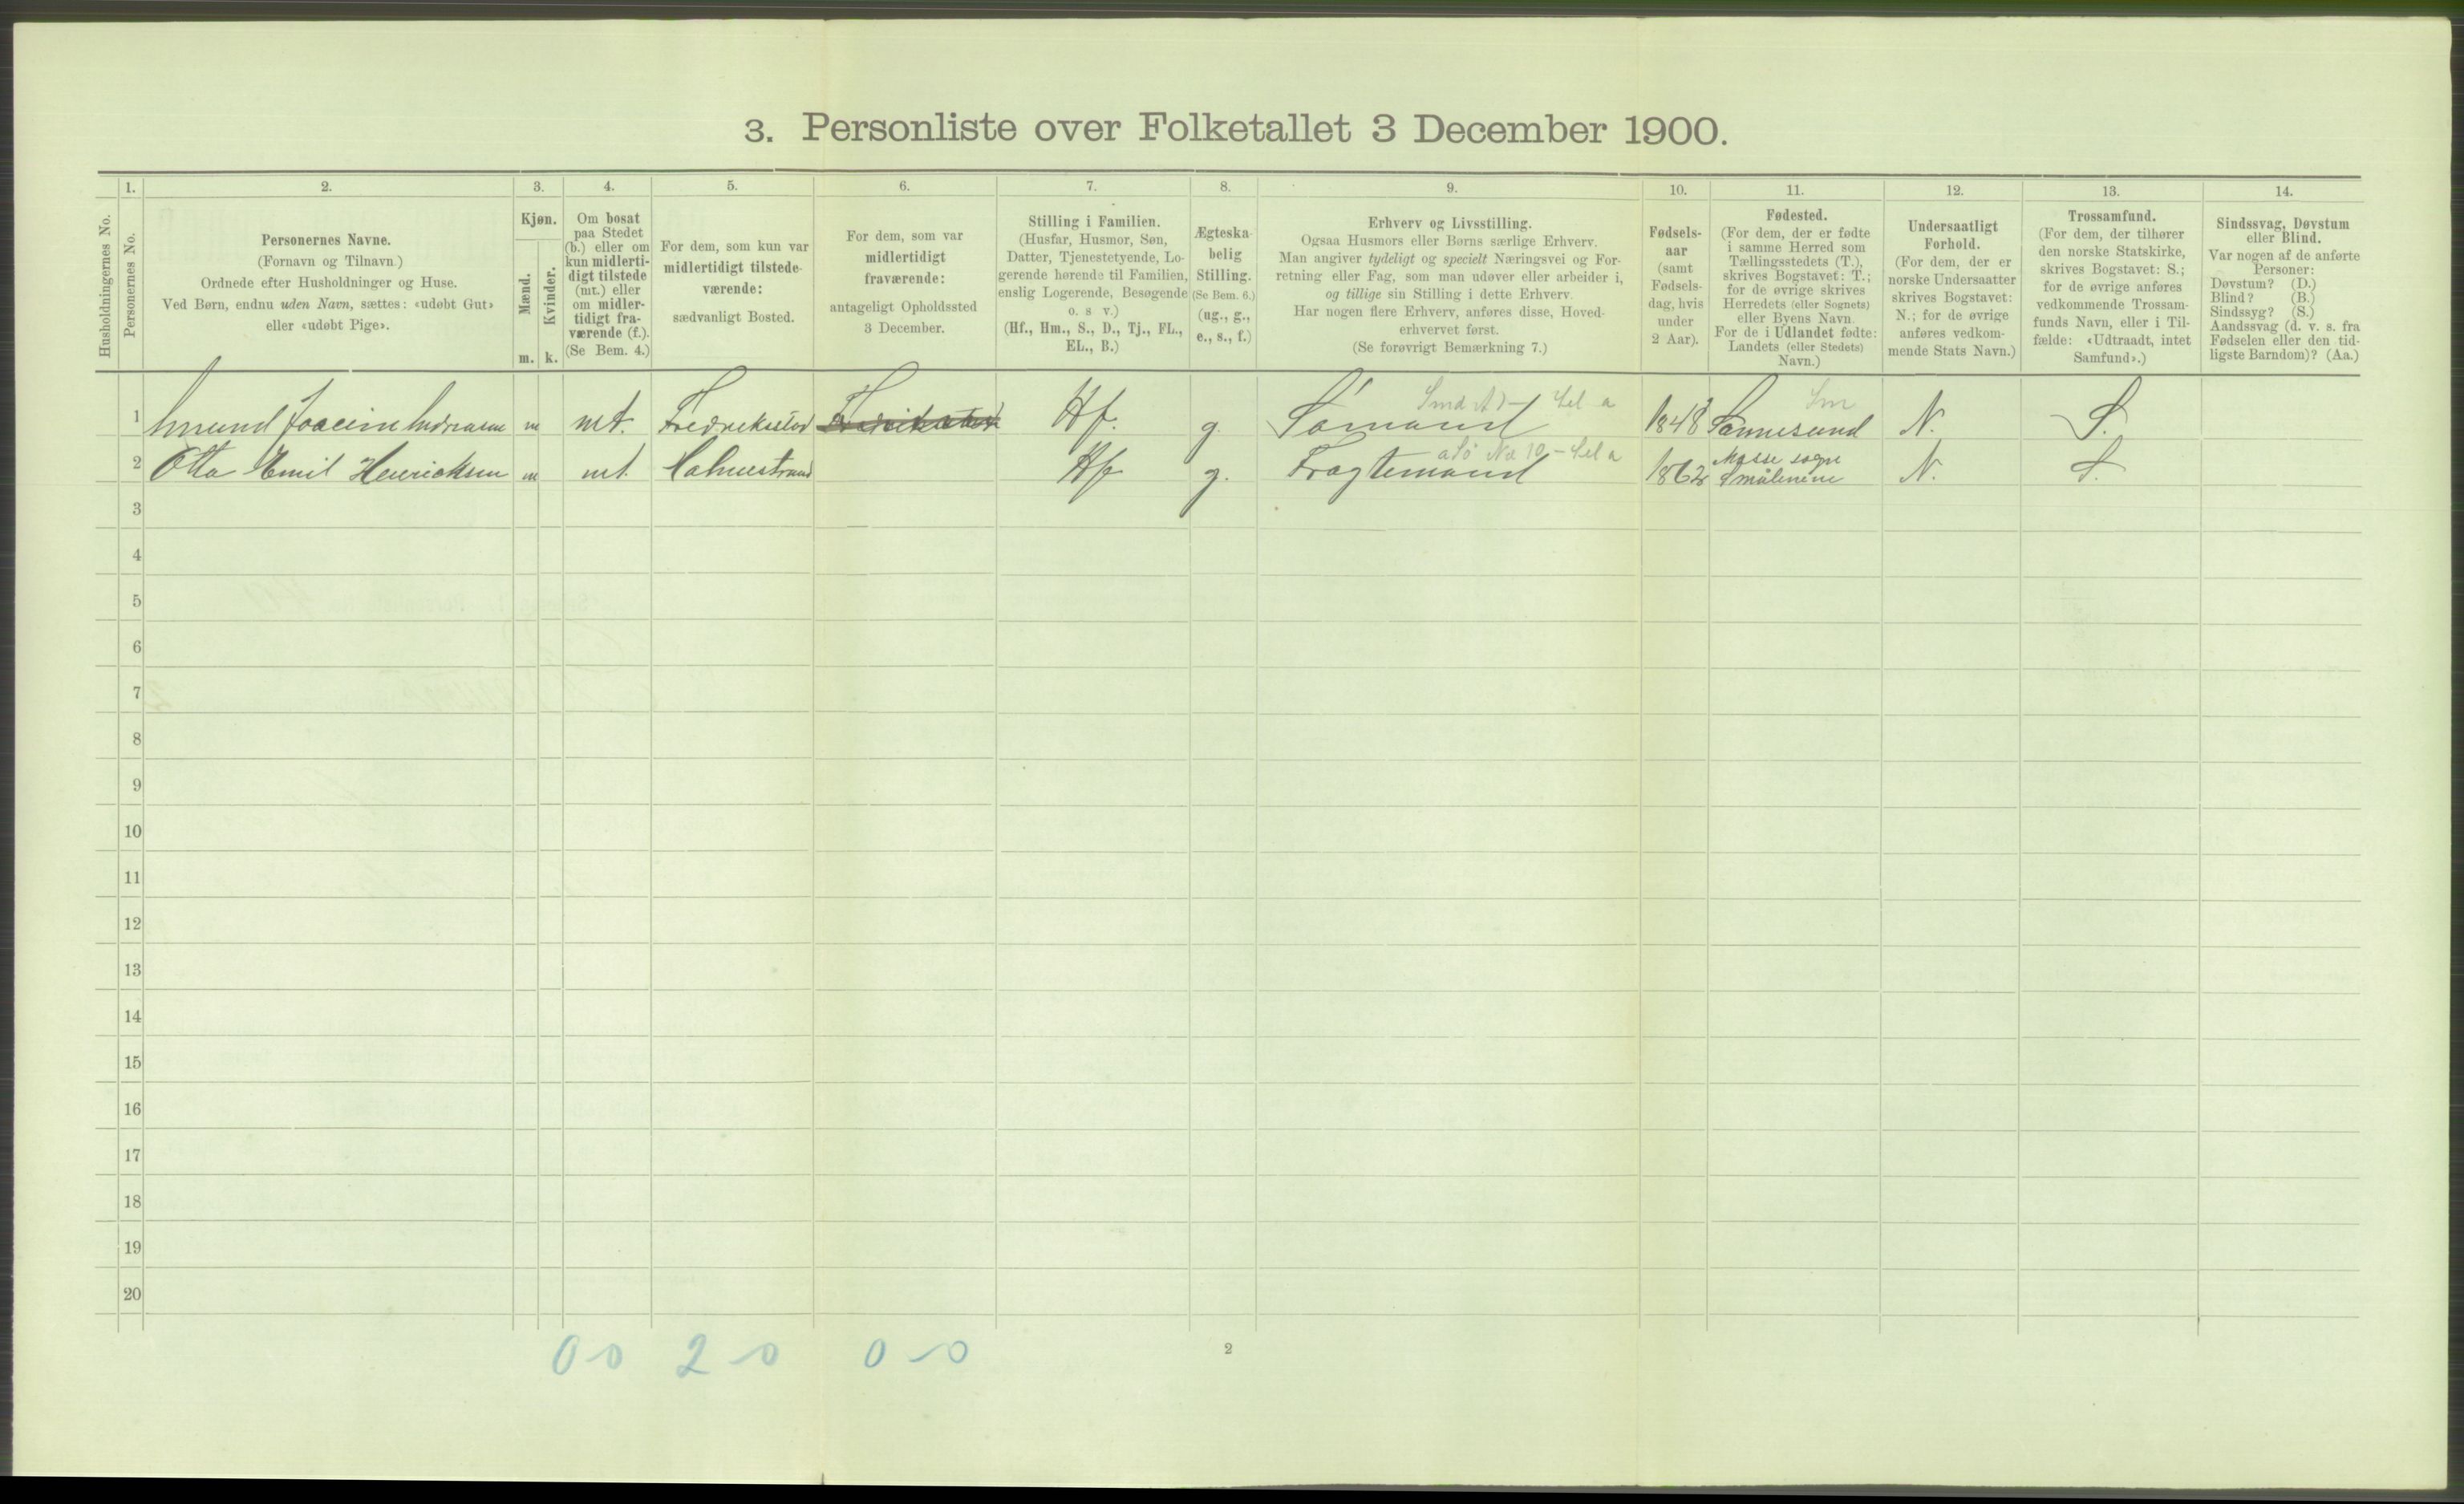 3. Personliste over Folketallet 3 December 1900.
1. 2. 3. 4. 5. 6. 7. 8. 9. 10. 11. 12. 13. 14.
Husholdningernes No.
Personernes No.
Personernes Navne.
(Fornavn og Tilnavn.)
Ordnede efter Husholdninger og Huse.
Ved Børn, endnu uden Navn, sættes: «udøbt Gut»
eller «udøbt Pige».
Kjøn.
Mænd.
Kvinder.
m. k.
Om bosat
paa Stedet
(b.) eller om
kun midlerti-
digt tilstede
(mt.) eller
om midler-
tidigt fra-
værende (f.).
(Se Bem. 4.)
For dem, som kun var
midlertidigt tilstede-
værende:
sædvanligt Bosted.
For dem, som var
midlertidigt
fraværende:
antageligt Opholdssted
3 December.
Stilling i Familien.
(Husfar, Husmor, Søn,
Datter, Tjenestetyende, Lo-
gerende hørende til Familien,
enslig Logerende, Besøgende
o. s v.)
(Hf., Hm., S., D., Tj., FL.,
EL., B.)
Ægteska-
belig
Stilling.
(Se Bem. 6.)
(ug., g.,
e., s., f.)
Erhverv og Livsstilling.
Ogsaa Husmors eller Børns særlige Erhverv.
Man angiver tydeligt og specielt Næringsvei og For-
retning eller Fag, som man udøver eller arbeider i,
og tillige sin Stilling i dette Erhverv.
Har nogen flere Erhverv, anføres disse, Hoved-
erhvervet først.
(Se forøvrigt Bemærkning 7.)
Fødsels-
aar
(samt
Fødsels-
dag, hvis
under
2 Aar).
Fødested.
(For dem, der er fødte
i samme Herred som
Tællingsstedets (T.),
skrives Bogstavet: T.;
for de øvrige skrives
Herredets (eller Sognets)
eller Byens Navn.
For de i Udlandet fødte:
Landets (eller Stedets)
Navn.)
Undersaatligt
Forhold.
(For dem, der er
norske Undersaatter
skrives Bogstavet:
N.; for de øvrige
anføres vedkom-
mende Stats Navn.)
Trossamfund.
(For dem, der tilhører
den norske Statskirke,
skrives Bogstavet: S.;
for de øvrige anføres
vedkommende Trossam-
funds Navn, eller i Til-
fælde: «Udtraadt, intet
Samfund».)
Sindssvag, Døvstum
eller Blind.
Var nogen af de anførte
Personer:
Døvstum? (D.)
Blind? (B.)
Sindssyg? (S.)
Aandssvag (d. v. s. fra
Fødselen eller den tid-
ligste Barndom)? (Aa.)
1 m mt. Fredrikstad Hf. g. Sømand 1848 Sannesund N. S.
2 Otto Emil Henriksen m mt. Holmestrand Hf g. Fragtemand 1862 Mosse sogn Smålenene N. S.
3
4
5
6
7
8
9
10
11
12
13
14
15
16
17
18
19
20
0-0 2-0 0-0 2